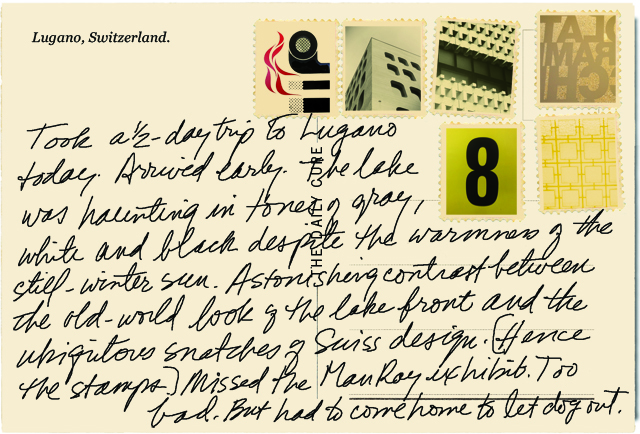 Lugano, Switzerland.
8
Took a ½-day trip to Lugano
today. Arrived early. The lake
was haunting in tones of gray,
white and black despite the warmness of the
still-winter sun. Astonishing contrast between
the old-world look of the lake front and the
ubiquitous snatches of Swiss design. (Hence
the stamps.) Missed the Man Ray exhibit. Too
bad. But had to come home to let dog out.
THE DAILY CURE